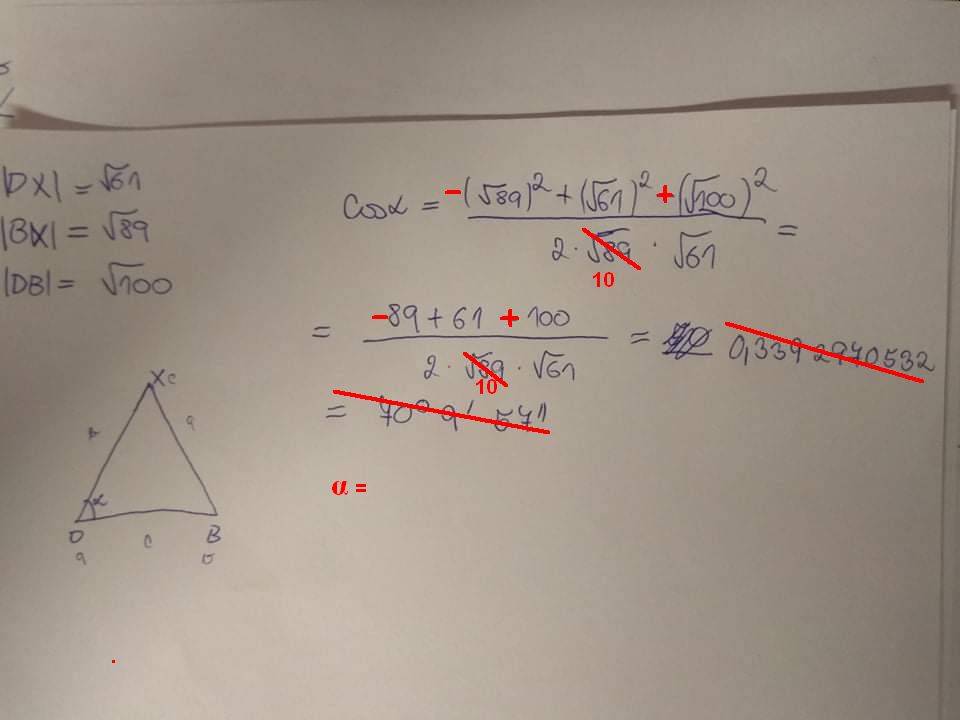 |DX| = √61
|BX| = √89
|DB| = √100
cos α = -(√89)² + (√61)² + (√100)² / 2 · √89 · √61 =
10
= -89 + 61 + 100 / 2 · √89 · √61 = 0,3392970532
10
= 70° 9' 57"
α =
X C
a
α
D B
a c